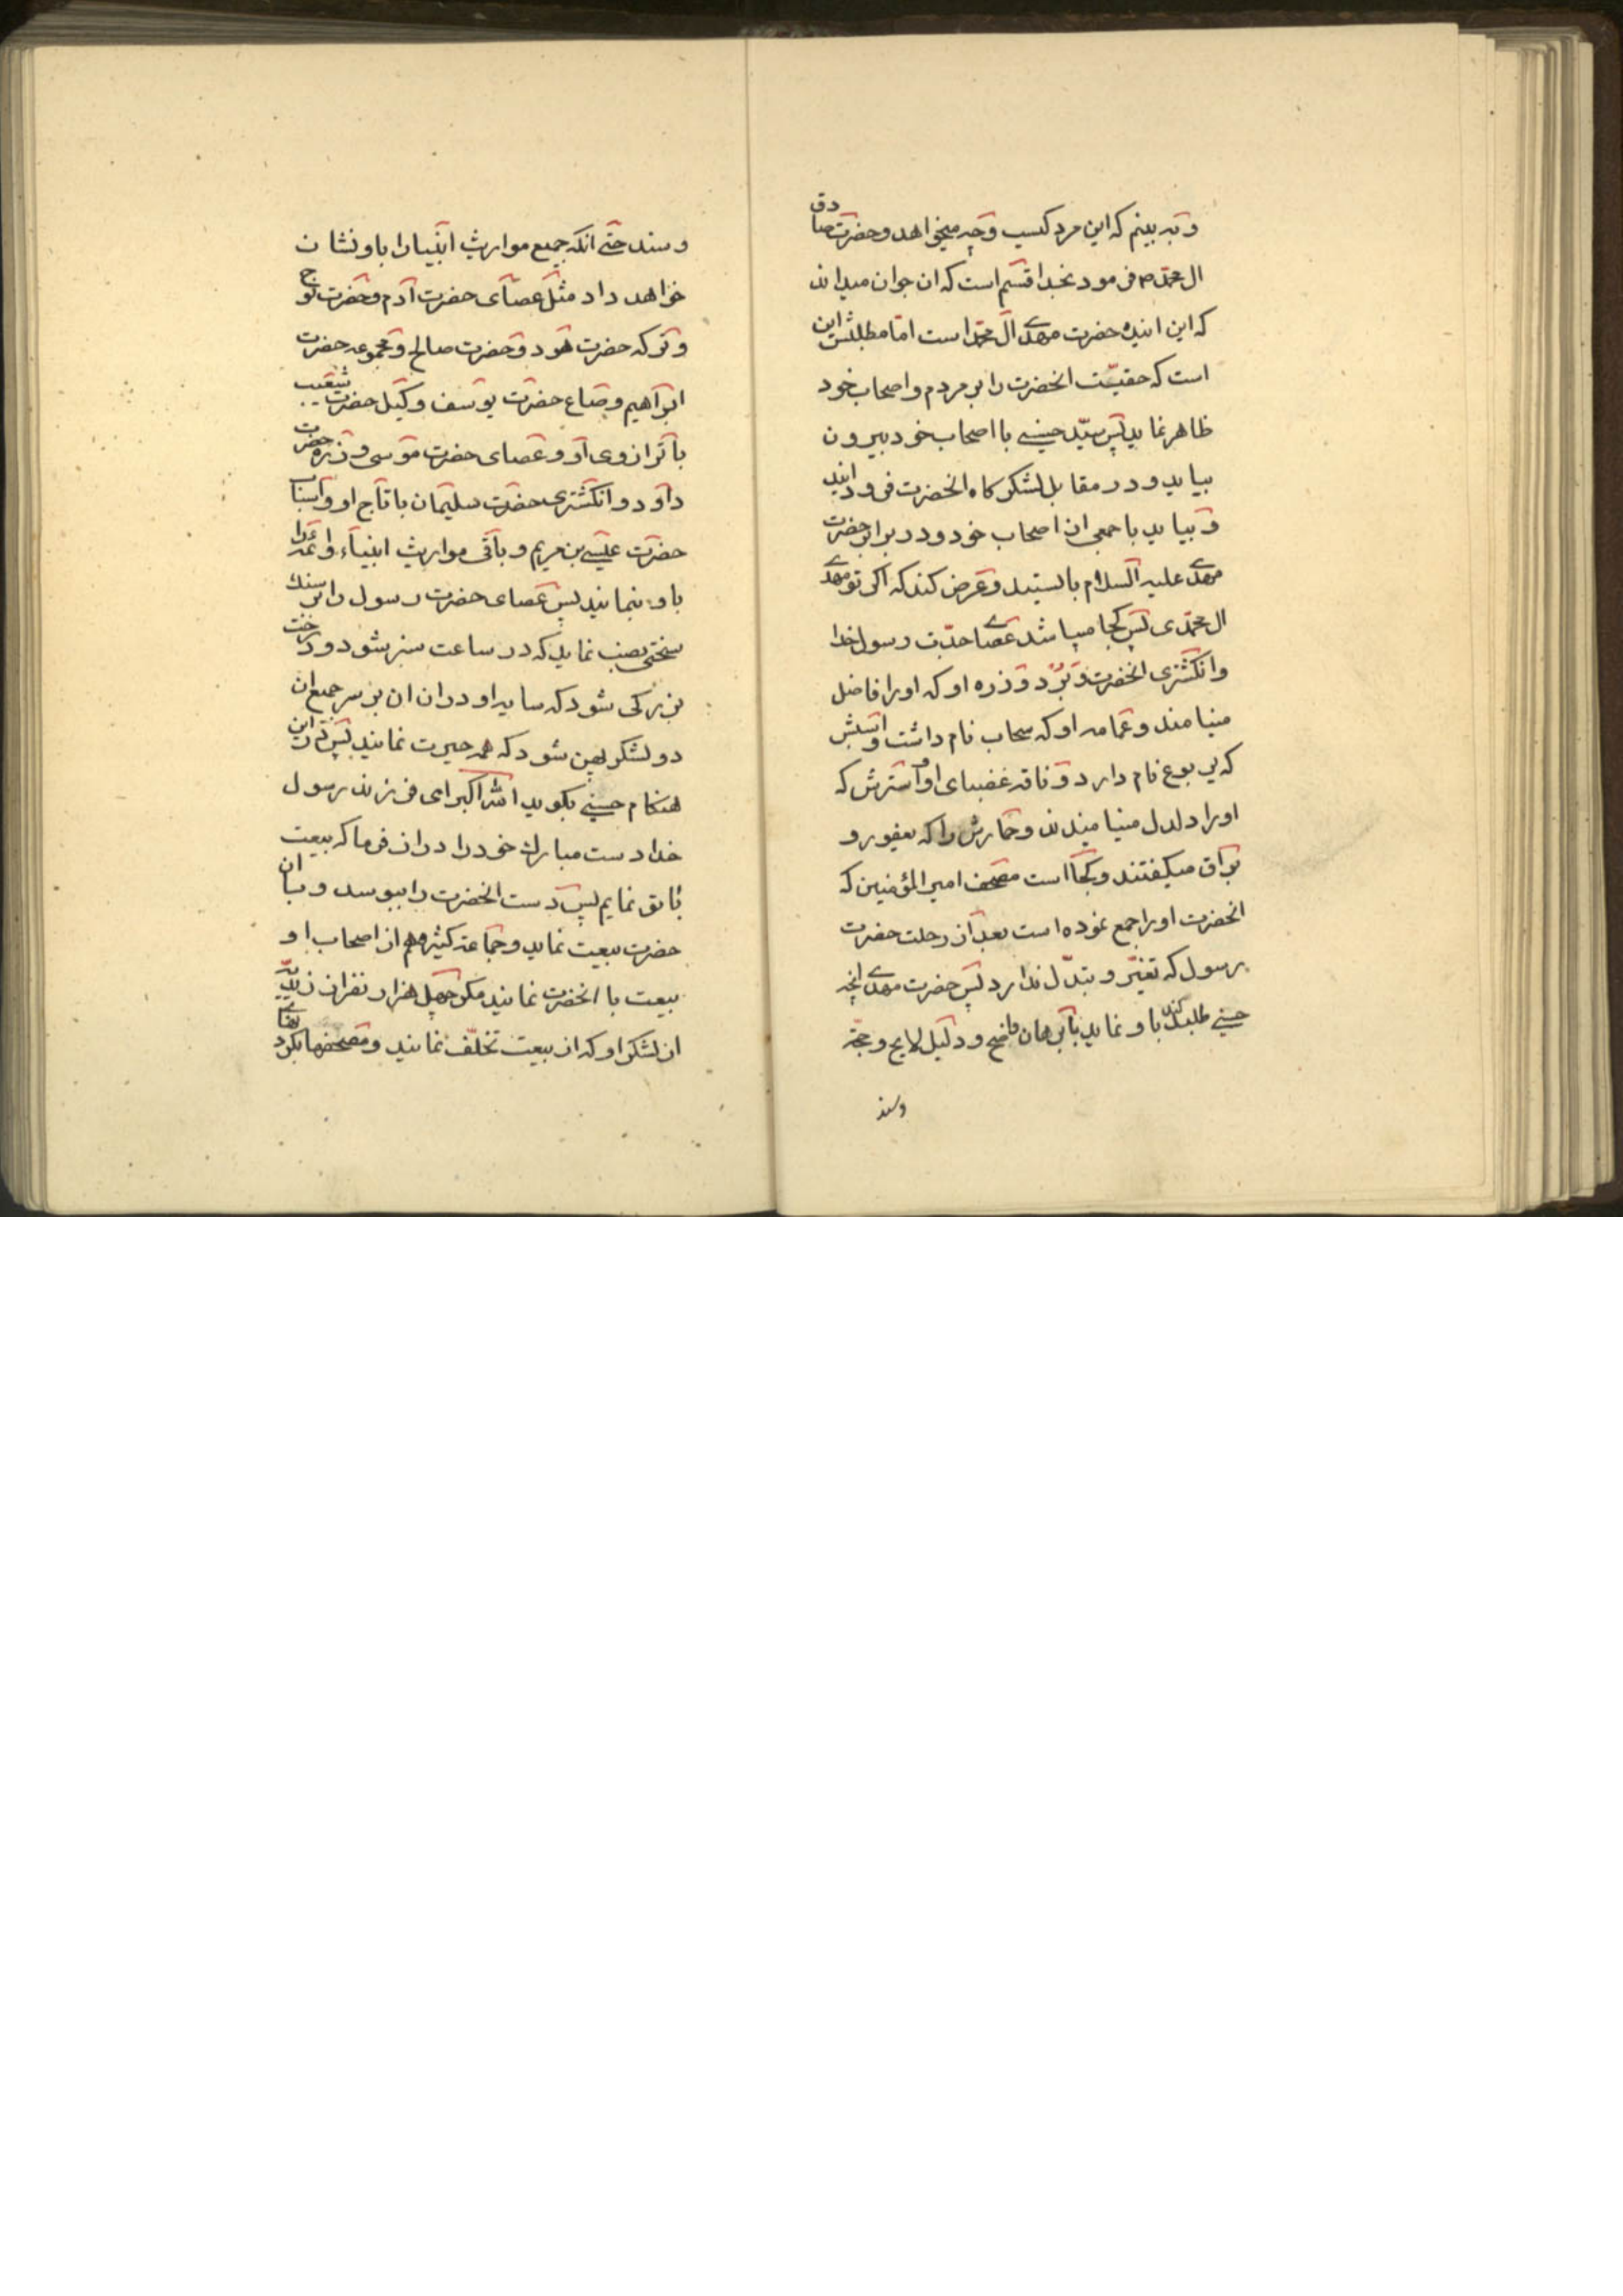 و به بینم که این مرد کیست و چه میخواهد و حضرت صادق
ال محمد ص فرمود بخدا قسم است که ان جوان میداند
که این اینده حضرت مهدی آل محمد است اما مطلبش این
است که حقیّت انحضرت را بر مردم و اصحاب خود
ظاهر نماید پس سیّد حسینی با اصحاب خود بیرون
بیاید و در مقابل لشکرکاه انحضرت فرود ایند
و بیاید با جمعی از اصحاب خود و در برابر حضرت
مهدی علیه السلام بایستد و عرض کند که اکر تو مهدی
ال محمّدی پس کجا میباشد عصای جدّت رسول خدا
و انکشتری انحضرت و بُرد و زره او که اورا فاضل
مینامند و عمامه او که سحاب نام داشت و اسبش
که یربوع نام دارد و ناقه غضبای او و استرش که
اورا دلدل مینامیدند و حمارش را که یعفور و
براق میکفتند و کجا است مصحف امیرالمؤمنین که
انحضرت اورا جمع نموده است بعد از رحلت حضرت
رسول که تغیّر و تبدّل ندارد پس حضرت مهدی انچه
حسینی طلب کند باو نماید با برهان واضح و دلیل لایح و حجّة
وسند
وسند حتی انکه جمیع مواریث انبیا را باو نشان
خواهد داد مثل عصای حضرت آدم و حضرت نوح
و ترکه حضرت هود و حضرت صالح و مجموعه حضرت
ابراهیم و صاع حضرت یوسف و کیل حضرت شعیب
با ترازوی او و عصای حضرت موسی و زره حضرت
داود و انکشتری حضرت سلیمان با تاج او و اسباب
حضرت عیسی بن مریم و باقی مواریث انبیاء و ائمه را
باو بنمایند پس عصای حضرت رسول را بر سنک
سختی نصب نماید که در ساعت سبز شود و درخت
بزرکی شود که سایه او در ان ان بر سر جمیع ان
دو لشکر پهن شود که همه حیرت نمایند پس در این
هنکام حسینی بکوید الله اکبر ای فرزند رسول
خدا دست مبارک خود را دراز فرما که بیعت
باتو نمایم پس دست انحضرت را ببوسد و با ان
حضرت بیعت نماید و جماعة کثیره هم از اصحاب او
بیعت با انحضرت نمایند مکر چهل هزار نفر از زیدیّه
از لشکر او که از بیعت تخلّف نمایند و مصحفها بکردنهای